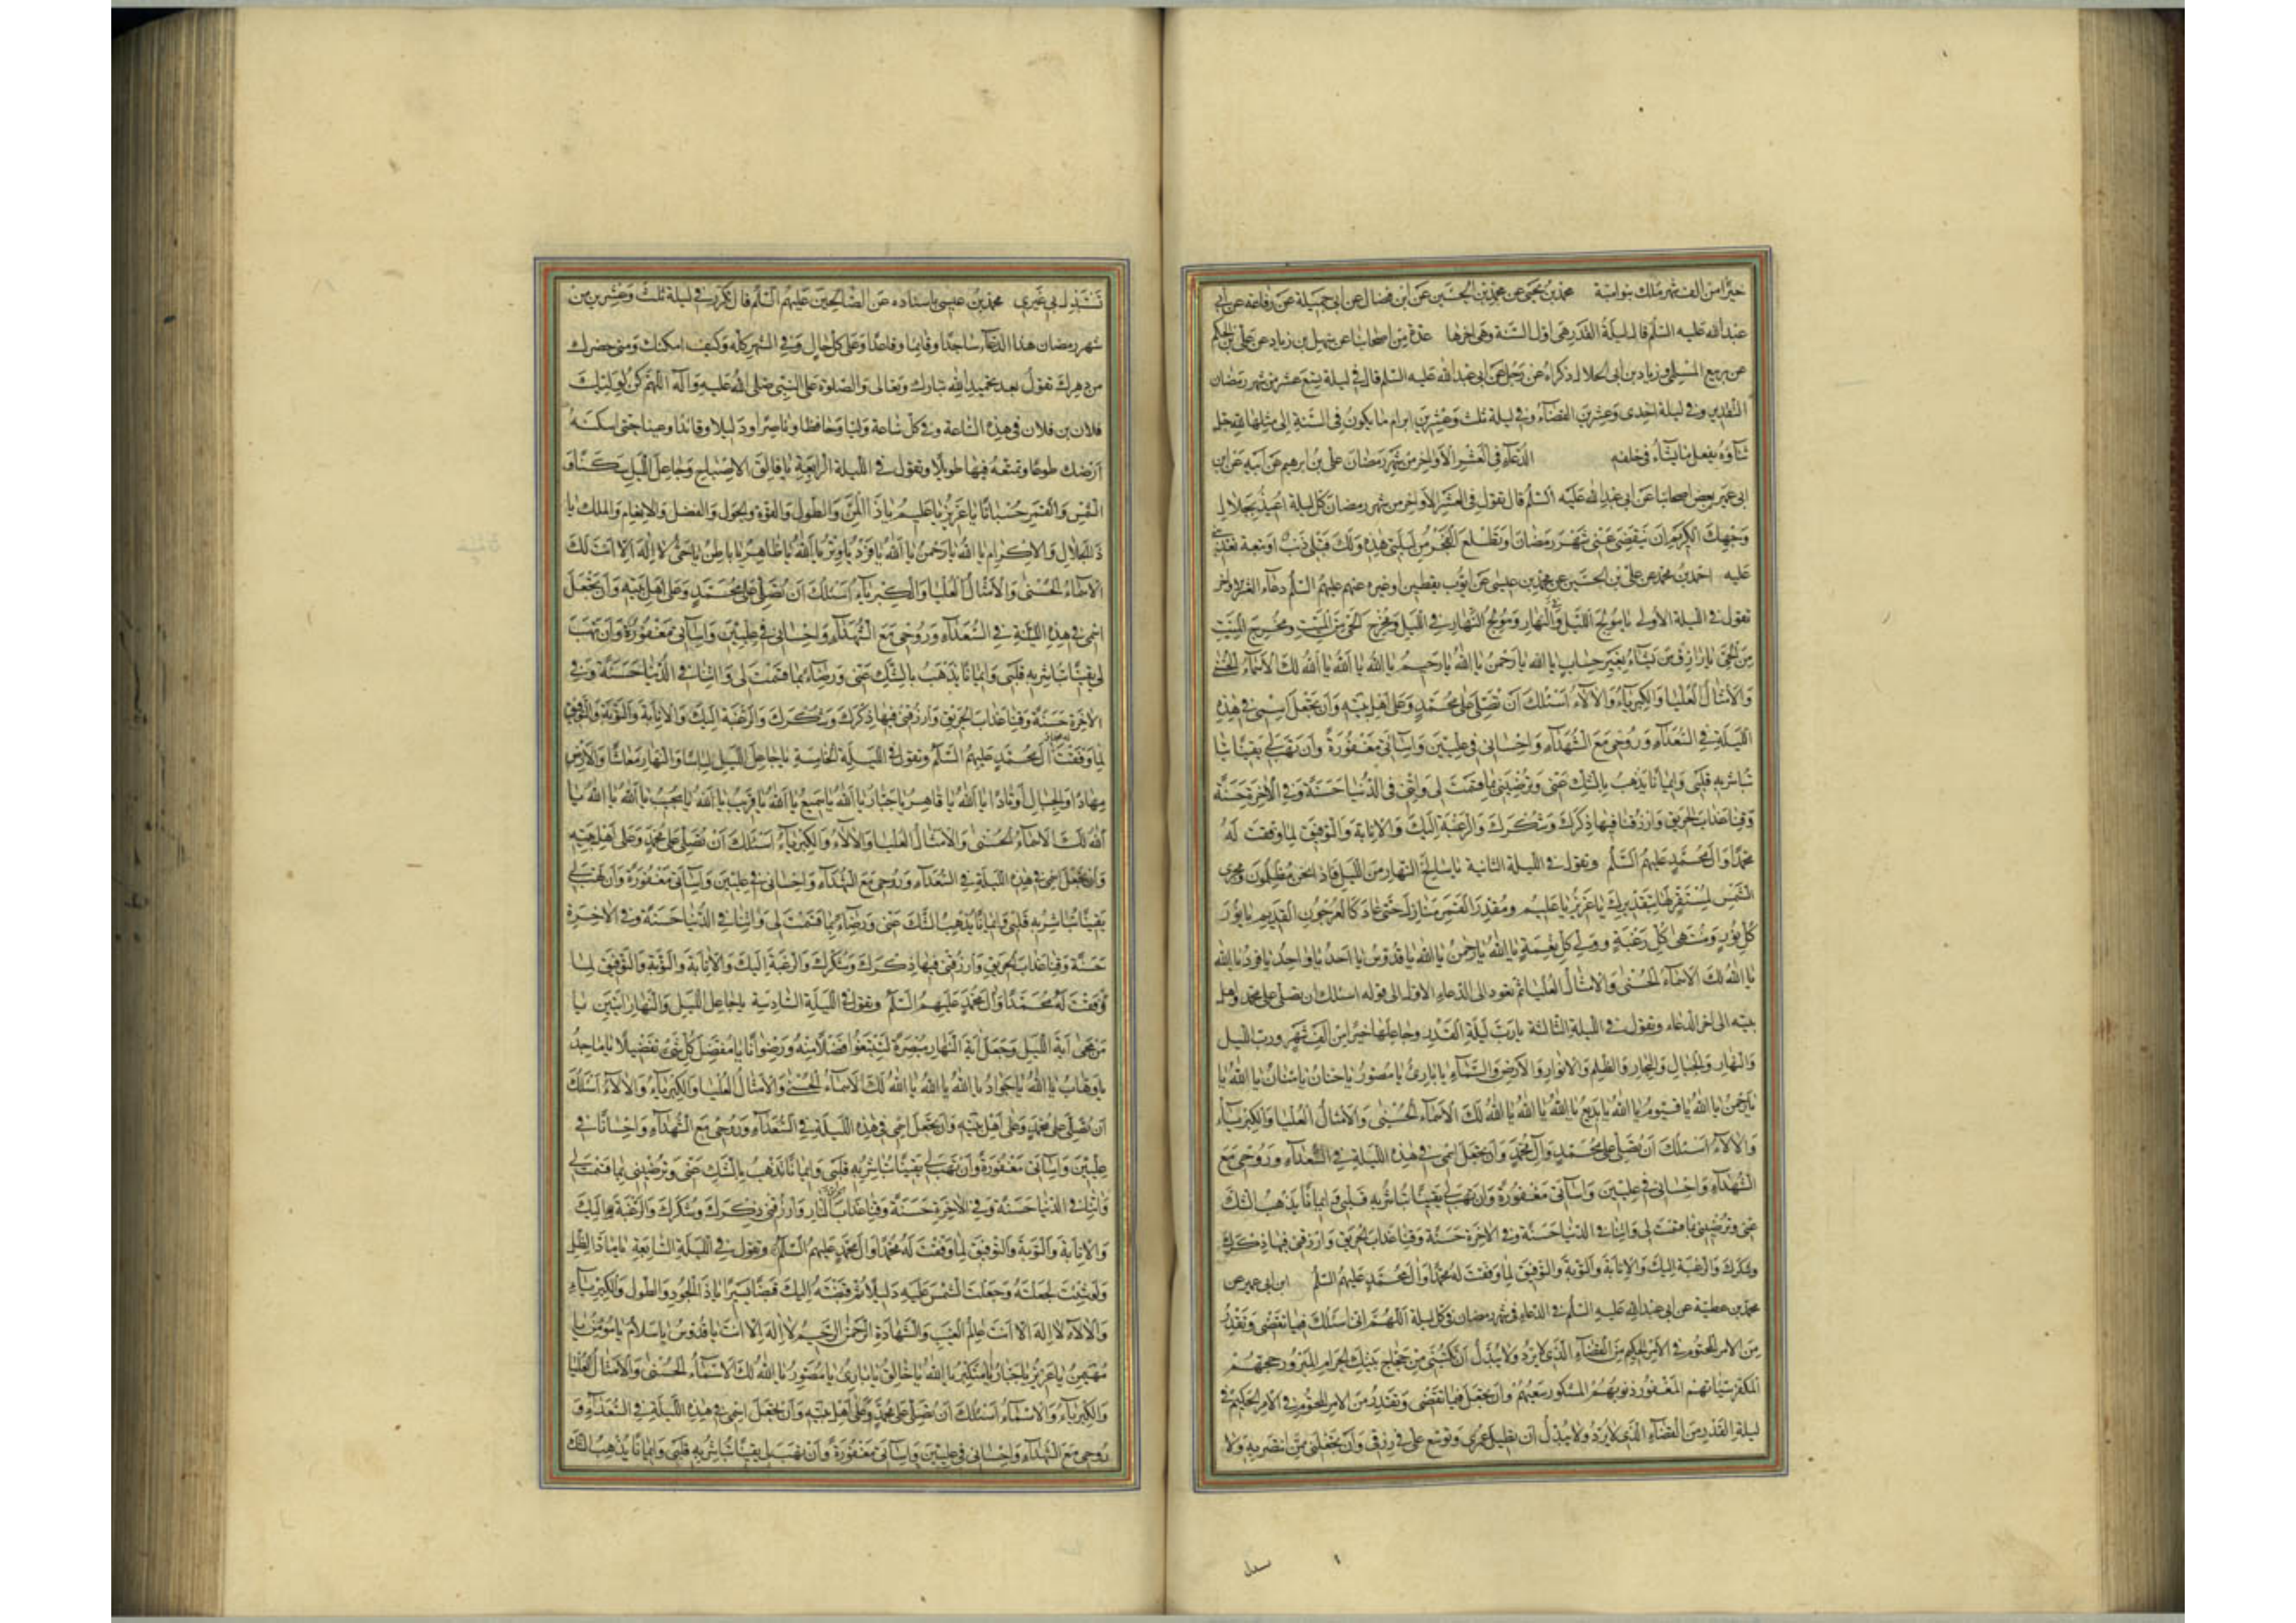 خيرا من الف شهر تملك بنو امية محمد بن يحيى عن محمد بن الحسين عن ابن فضال عن ابى جميلة عن رفاعة عن ابى
عبد الله عليه السلم قال ليلة القدر هى اول السنة وهى اخرها عدة من اصحابنا عن سهل بن زياد عن على بن الحكم
عن ربيع المسلى وزياد بن ابى الحلال ذكراه عن رجل عن ابى عبد الله عليه السلم قال فى ليلة تسع عشر من شهر رمضان
التقدير وفى ليلة احدى وعشرين القضاء وفى ليلة ثلث وعشرين ابرام ما يكون فى السنة الى مثلها لله جل
ثناؤه يفعل ما يشاء فى خلقه الدعاء فى العشر الاواخر من شهر رمضان على بن ابرهيم عن ابيه عن ابن
ابى عمير بعض اصحابنا عن ابى عبد الله عليه السلم قال تقول فى العشر الاواخر من شهر رمضان كل ليلة اعيذ بجلال
وجهك الكريم ان ينقضى عنى شهر رمضان او يطلع الفجر من ليلتى هذه ولك قبلى ذنب او تبعة تعذبنى
عليه احمد بن محمد عن على بن الحسين عن محمد بن عيسى عن ايوب يقطين او غيره عنهم عليهم السلم دعاء العشر الاواخر
تقول فى الليلة الاولى يا مولج الليل فى النهار ومولج النهار فى الليل ومخرج الحى من الميت ومخرج الميت
من الحى يا رازق من يشاء بغير حساب يا الله يا رحمن يا الله يا رحيم يا الله يا الله يا الله لك الاسماء الحسنى
والامثال العليا والكبرياء والالاء اسئلك ان تصلى على محمد وعلى اهل بيته وان تجعل اسمى فى هذه
الليلة فى السعداء وروحى مع الشهداء واحسانى فى عليين واساءتى مغفورة وان تهب لى يقينا
تباشر به قلبى وايمانا يذهب بالشك عنى وترضينى بما قسمت لى واتنى فى الدنيا حسنة وفى الاخرة حسنة
وقنا عذاب الحريق وارزقنا فيها ذكرك وشكرك والرغبة اليك والانابة والتوفيق لما وفقت له
محمدا وال محمد عليهم السلم وتقول فى الليلة الثانية يا سالخ النهار من الليل فاذا نحن مظلمون ومجرى
الشمس لمستقرها بتقديرك يا عزيز يا عليم ومقدر القمر منازل حتى عاد كالعرجون القديم يا نور
كل نور ومنتهى كل رغبة وولى كل نعمة يا الله يا رحمن يا الله يا قدوس يا احد يا واحد يا فرد يا الله
يا الله لك الاسماء الحسنى والامثال العليا ثم تعود الى الدعاء الاول الى قوله اسئلك ان تصلى على محمد واهل
بيته الى اخر الدعاء وتقول فى الليلة الثالثة يا رب ليلة القدر وجاعلها خيرا من الف شهر ورب الليل
والنهار والجبال والبحار والظلم والانوار والارض والسماء يا بارئ يا مصور يا حنان يا منان يا الله يا
يا رحمن يا الله يا قيوم يا الله يا بديع يا الله يا الله يا الله لك الاسماء الحسنى والامثال العليا والكبرياء
والالاء اسئلك ان تصلى على محمد وال محمد وان تجعل اسمى فى هذه الليلة فى السعداء وروحى مع
الشهداء واحسانى فى عليين واساءتى مغفورة وان تهب لى يقينا تباشر به قلبى وايمانا يذهب الشك
عنى وترضينى بما قسمت لى واتنا فى الدنيا حسنة وفى الاخرة حسنة وقنا عذاب الحريق وارزقنى فيها ذكرك
وشكرك والرغبة اليك والانابة والتوبة والتوفيق لما وفقت له محمدا وال محمد عليهم السلم ابن ابى عمير عن
محمد بن عطية عن ابى عبد الله عليه السلم فى الدعاء فى شهر رمضان فى كل ليلة اللهم انى اسئلك فيما تقضى وتقدر
من الامر المحتوم فى الامر الحكيم من القضاء الذى لا يرد ولا يبدل ان تكتبنى من حجاج بيتك الحرام المبرور حجهم
المكفر سيئاتهم المغفور ذنوبهم المشكور سعيهم وان تجعل فيما تقضى وتقدر من الامر المحتوم فى الامر الحكيم فى
ليلة القدر من القضاء الذى لا يرد ولا يبدل ان تطيل عمرى وتوسع على فى رزقى وان تجعلنى ممن تنتصر به ولا
تستبدل بى غيرى محمد بن عيسى باسناده عن الصالحين عليهم السلم قال تكرر فى ليلة ثلث وعشرين من
شهر رمضان هذا الدعاء ساجدا وقائما وقاعدا وعلى كل حال وفى الشهر كله وكيف امكنك ومتى حضرك
من دهرك تقول بعد تحميد الله تبارك وتعالى والصلوة على النبى صلى الله عليه واله اللهم كن لوليك
فلان بن فلان فى هذه الساعة وفى كل ساعة وليا وحافظا وناصرا ودليلا وقائدا وعينا حتى تسكنه
ارضك طوعا وتمتعه فيها طويلا وتقول فى الليلة الرابعة يا فالق الاصباح وجاعل الليل سكنا و
الشمس والقمر حسبانا يا عزيز يا عليم يا ذا المن والطول والقوة والحول والفضل والانعام والملك يا
ذا الجلال والاكرام يا الله يا رحمن يا الله يا فرد يا وتر يا الله يا ظاهر يا باطن يا حى لا اله الا انت لك
الاسماء الحسنى والامثال العليا والكبرياء اسئلك ان تصلى على محمد وعلى اهل بيته وان تجعل
اسمى فى هذه الليلة فى السعداء وروحى مع الشهداء واحسانى فى عليين واساءتى مغفورة وان تهب
لى يقينا تباشر به قلبى وايمانا يذهب بالشك عنى ورضاء بما قسمت لى واتنا فى الدنيا حسنة وفى
الاخرة حسنة وقنا عذاب الحريق وارزقنى فيها ذكرك وشكرك والرغبة اليك والانابة والتوبة والتوفيق
لما وفقت له محمدا وال محمد عليهم السلم وتقول فى الليلة الخامسة يا جاعل الليل لباسا والنهار معاشا والارض
مهادا والجبال اوتادا يا الله يا قاهر يا جبار يا الله يا سميع يا الله يا قريب يا الله يا مجيب يا الله يا الله يا
الله لك الاسماء الحسنى والامثال العليا والالاء والكبرياء اسئلك ان تصلى على محمد وعلى اهل بيته
وان تجعل اسمى فى هذه الليلة فى السعداء وروحى مع الشهداء واحسانى فى عليين واساءتى مغفورة وان تهب لى
يقينا تباشر به قلبى وايمانا يذهب الشك عنى ورضاء بما قسمت لى واتنا فى الدنيا حسنة وفى الاخرة
حسنة وقنا عذاب الحريق وارزقنى فيها ذكرك وشكرك والرغبة اليك والانابة والتوبة والتوفيق لما
وفقت له محمدا وال محمد عليهم السلم وتقول فى الليلة السادسة يا جاعل الليل والنهار ايتين يا
من محى اية الليل وجعل اية النهار مبصرة لتبتغوا فضلا منه ورضوانا يا مفصل كل شئ تفصيلا يا ماجد
يا وهاب يا الله يا جواد يا الله يا الله يا الله لك الاسماء الحسنى والامثال العليا والكبرياء والالاء اسئلك
ان تصلى على محمد وعلى اهل بيته وان تجعل اسمى فى هذه الليلة فى السعداء وروحى مع الشهداء واحسانا فى
عليين واساءتى مغفورة وان تهب لى يقينا تباشر به قلبى وايمانا يذهب بالشك عنى وترضينى بما قسمت لى
واتنا فى الدنيا حسنة وفى الاخرة حسنة وقنا عذاب النار وارزقنى ذكرك وشكرك والرغبة اليك
والانابة والتوبة والتوفيق لما وفقت له محمدا وال محمد عليهم السلم وتقول فى الليلة السابعة يا ماد الظل
ولو شئت لجعلته وجعلت الشمس عليه دليلا ثم قبضته اليك قبضا يسيرا يا ذا الجود والطول والكبرياء
والالاء لا اله الا انت عالم الغيب والشهادة الرحمن الرحيم لا اله الا انت يا قدوس يا سلام يا مؤمن يا
مهيمن يا عزيز يا جبار يا متكبر يا الله يا خالق يا بارئ يا مصور يا الله لك الاسماء الحسنى والامثال العليا
والكبرياء والاسماء اسئلك ان تصلى على محمد وعلى اهل بيته وان تجعل اسمى فى هذه الليلة فى السعداء و
روحى مع الشهداء واحسانى فى عليين واساءتى مغفورة وان تهب لى يقينا تباشر به قلبى وايمانا يذهب الشك